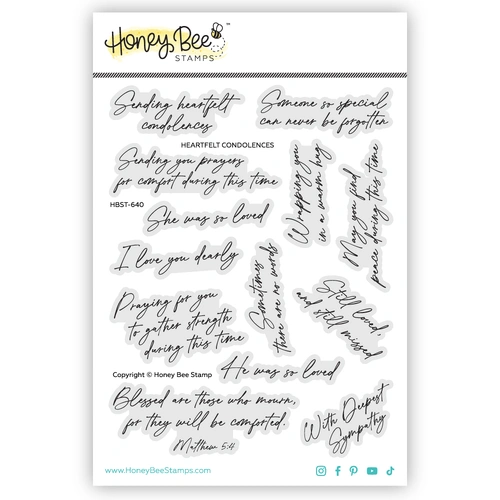 Honey Bee
STAMPS
Sending heartfelt
condolences
Someone so special
can never be forgotten
HEARTFELT CONDOLENCES
Sending you prayers
for comfort during this time
Wrapping you
in a warm hug
May you find
peace during this time
HBST-640
She was so loved
I love you dearly
Sometimes
there are no words
Still loved,
and still missed
Praying for you
to gather strength
during this time
He was so loved
Copyright © Honey Bee Stamp
Blessed are those who mourn,
for they will be comforted.
Matthew 5:4
With Deepest
Sympathy
www.HoneyBeeStamps.com